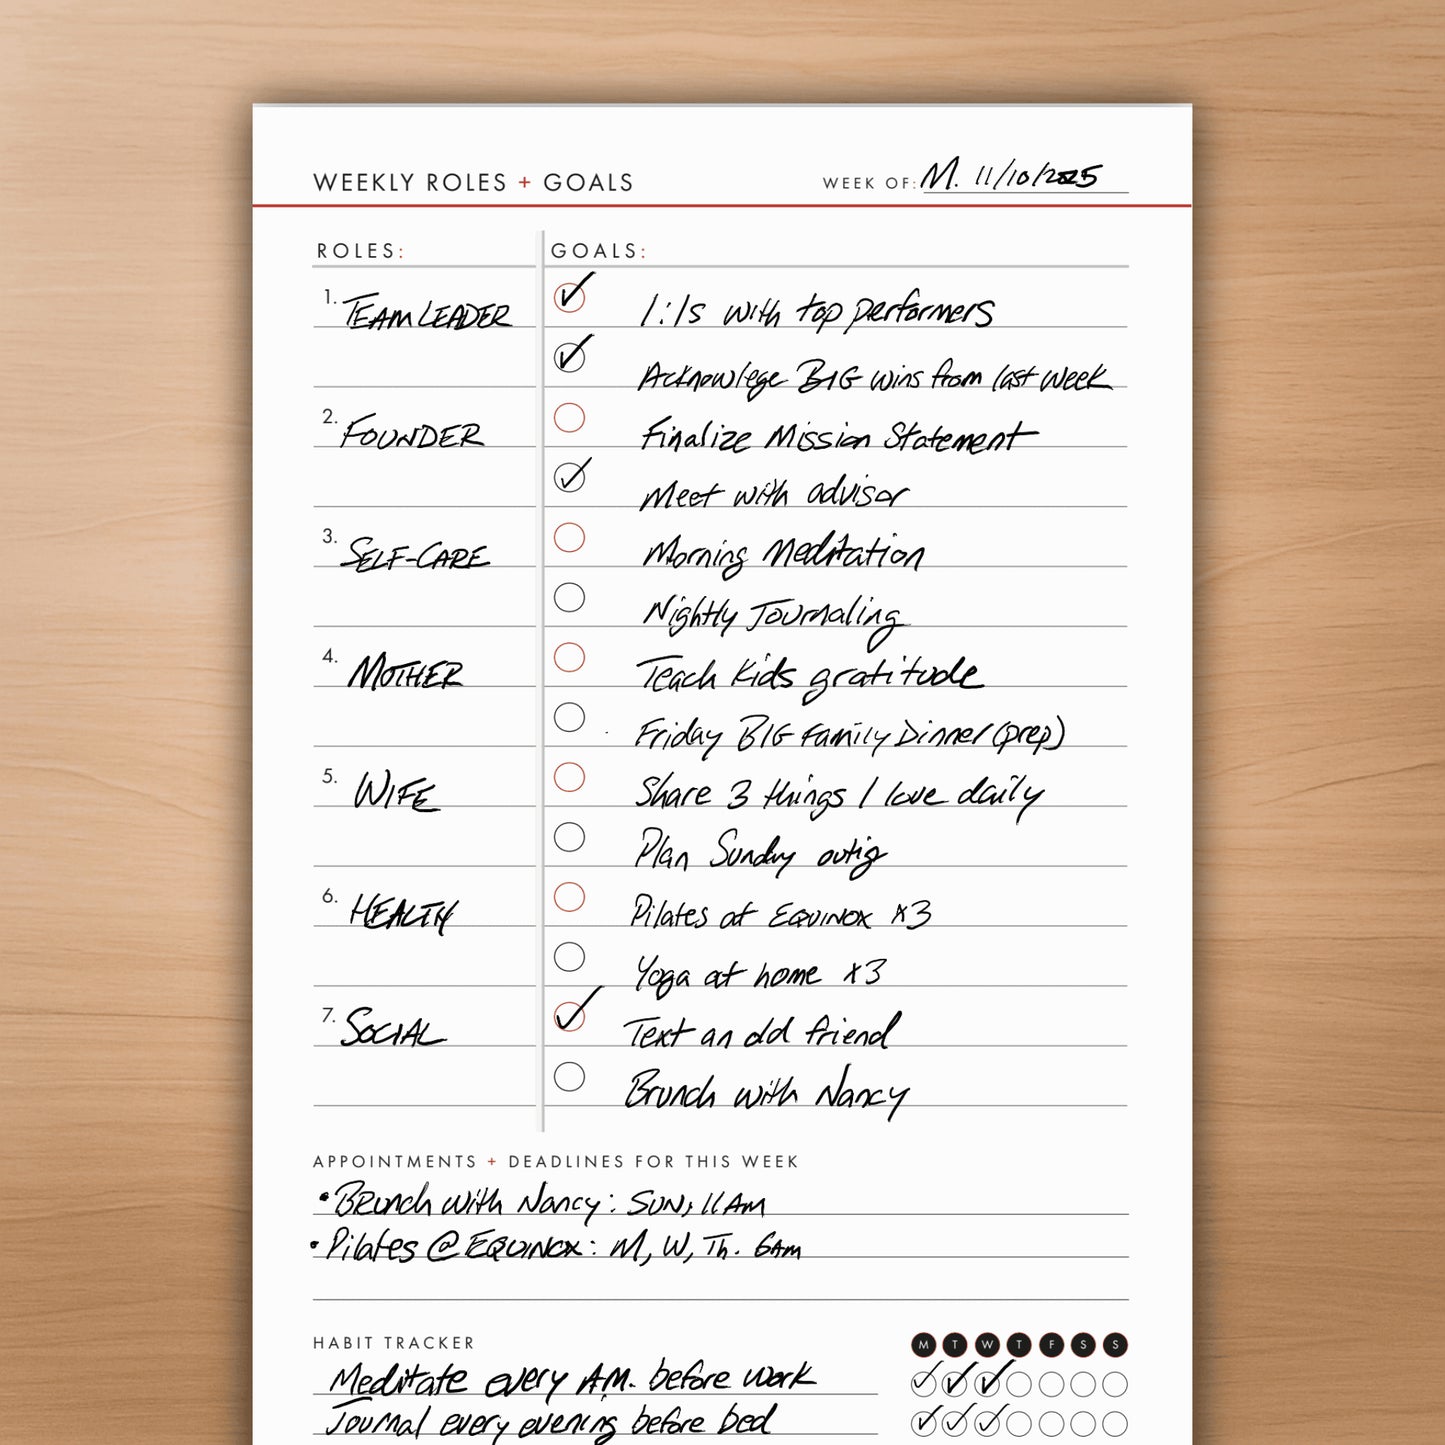 WEEKLY ROLES + GOALS
WEEK OF: M. 11/10/2025
ROLES:
GOALS:
1. TEAM LEADER
1:1s with top performers
Acknowlege BIG wins from last week
2. FOUNDER
Finalize Mission Statement
Meet with advisor
3. SELF-CARE
Morning Meditation
Nightly Journaling
4. MOTHER
Teach Kids gratitude
Friday BIG Family Dinner (prep)
5. WIFE
Share 3 things I love daily
Plan Sunday outig
6. HEALTH
Pilates at EQUINOX x3
Yoga at home x3
7. SOCIAL
Text an old friend
Brunch with Nancy
APPOINTMENTS + DEADLINES FOR THIS WEEK
• Brunch with Nancy: SUN, 11AM
• Pilates @ EQUINOX: M, W, Th. 6am
HABIT TRACKER M T W T F S S
Meditate every A.M. before work
Journal every evening before bed